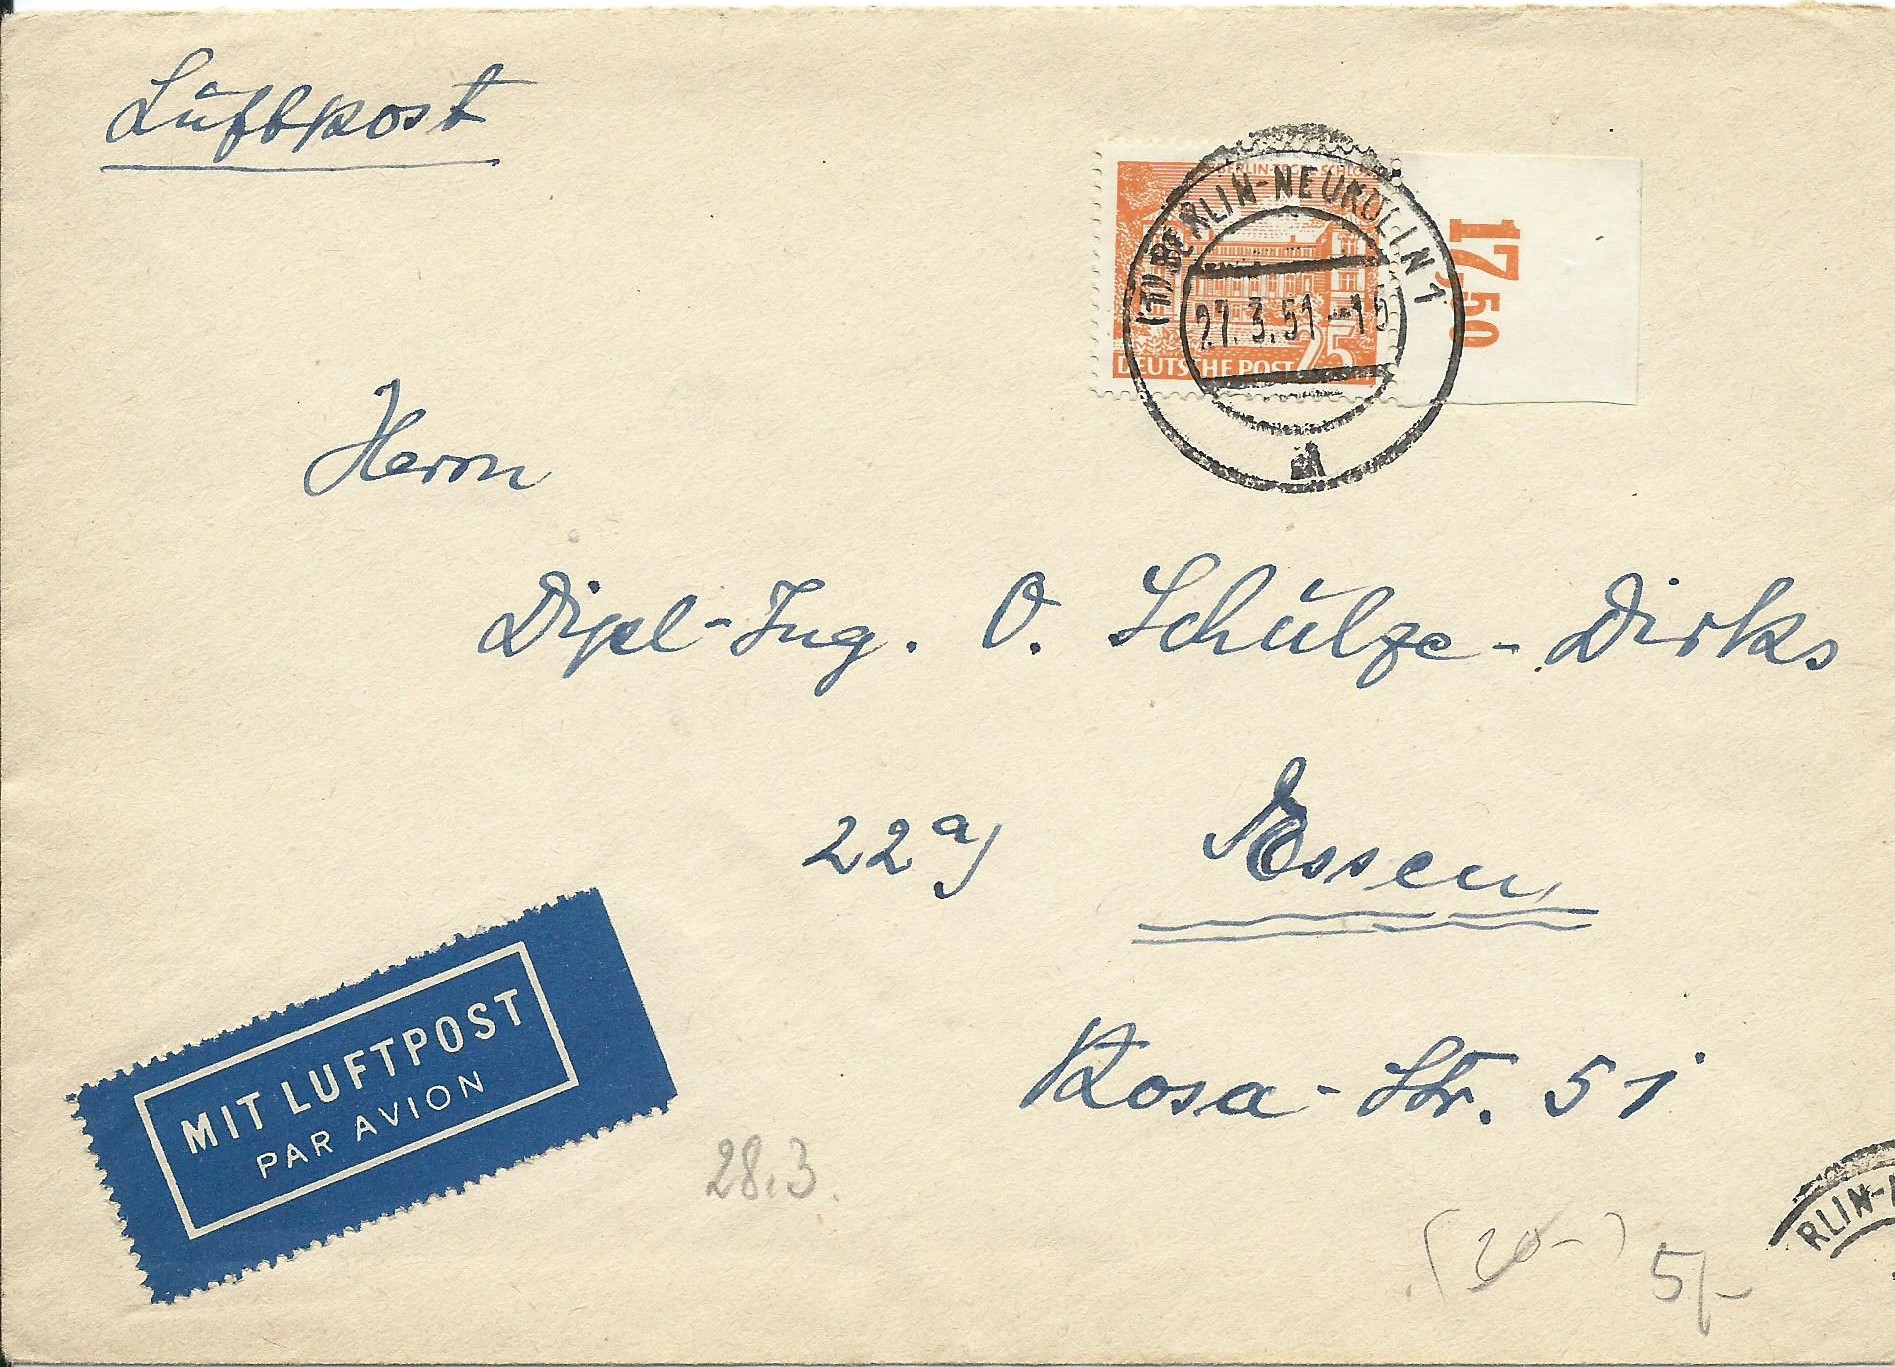 Luftpost
BERLIN-TEGEL-SCHLOSS
DEUTSCHE POST 25
BERLIN-NEUKÖLLN 1
27.3.51-15
17,50
Herrn
Dipl-Ing. O. Schulze-Dirks
22a) Essen
Rosa-Str. 51
MIT LUFTPOST
PAR AVION
28.3.
(20-) 5/-
RLIN-